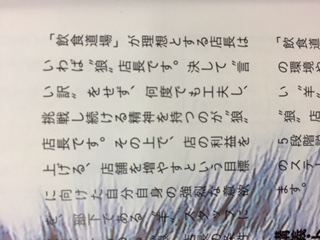 「飲食道場」が理想とする店長は
いわば“狼”店長です。決して“言
い訳”をせず、何度でも工夫し、
挑戦し続ける精神を持つのが“狼”
店長です。その上で、店の利益を
上げる、店舗を増やすという目標
に向けた自分自身の強烈な意欲
を、部下である“羊”スタッフに
「飲食道
の環境や
い“羊”
“狼”店
5段階
のステー
ます。
講義・